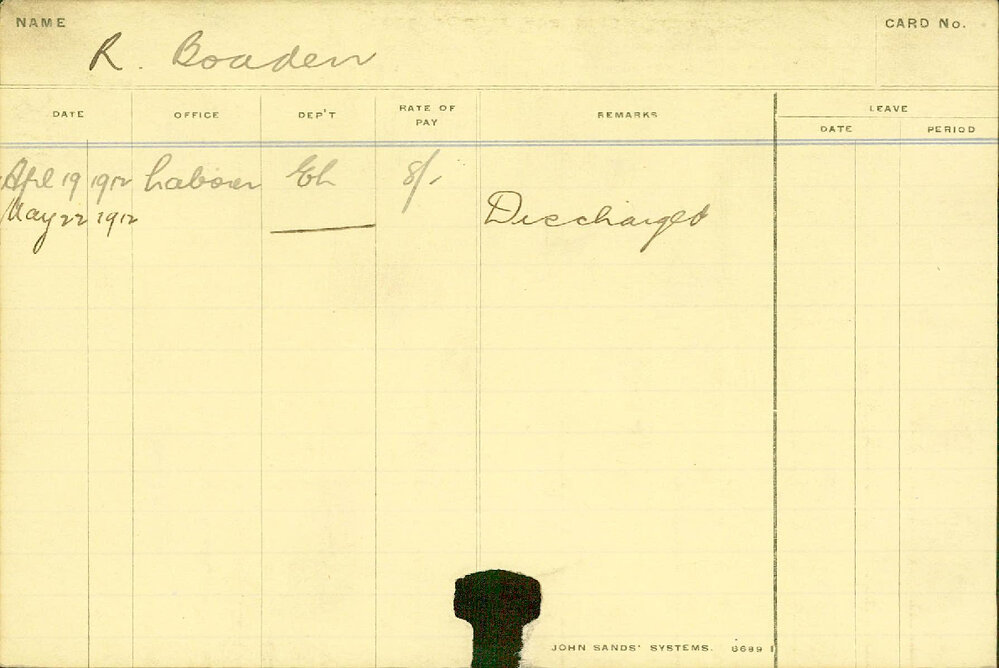 NAME
CARD No.
R. Boaden
DATE OFFICE DEP'T RATE OF PAY REMARKS LEAVE
DATE PERIOD
Apl 19 1912 Labourer 8/-
May 22 1912 Discharged
JOHN SANDS' SYSTEMS. 6699